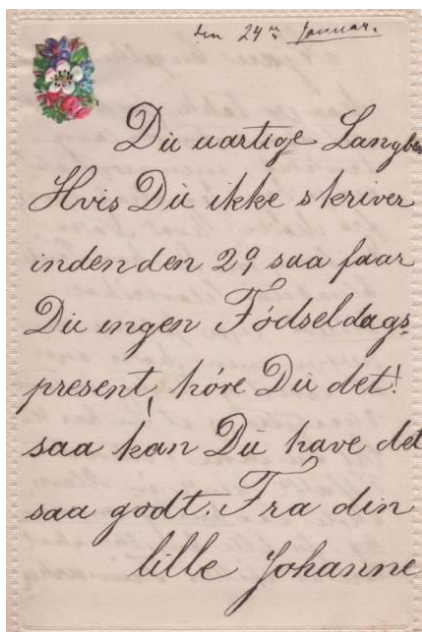 den 24de Januar.
Du uartige Langben
Hvis Du ikke skriver
inden den 29, saa faar
Du ingen Fódseldags-
present, hóre Du det!
saa kan Du have det
saa godt. Fra din
lille Johanne